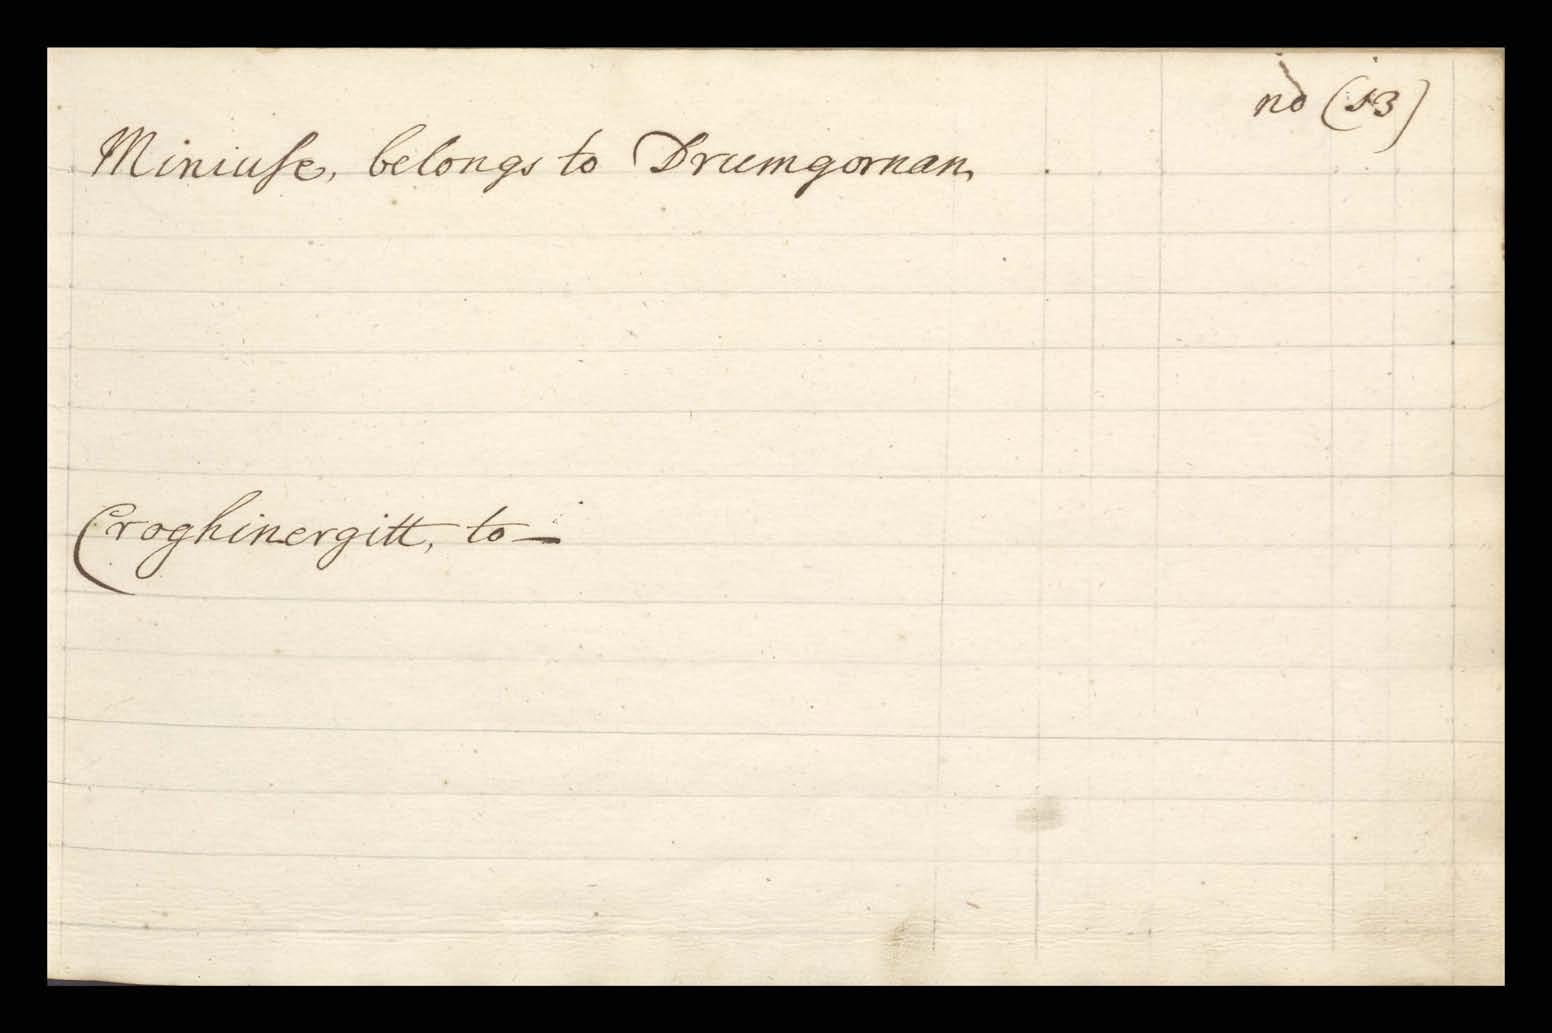 no (13)
Miniuse, belongs to Drumgornan,
Croghinergitt, to —